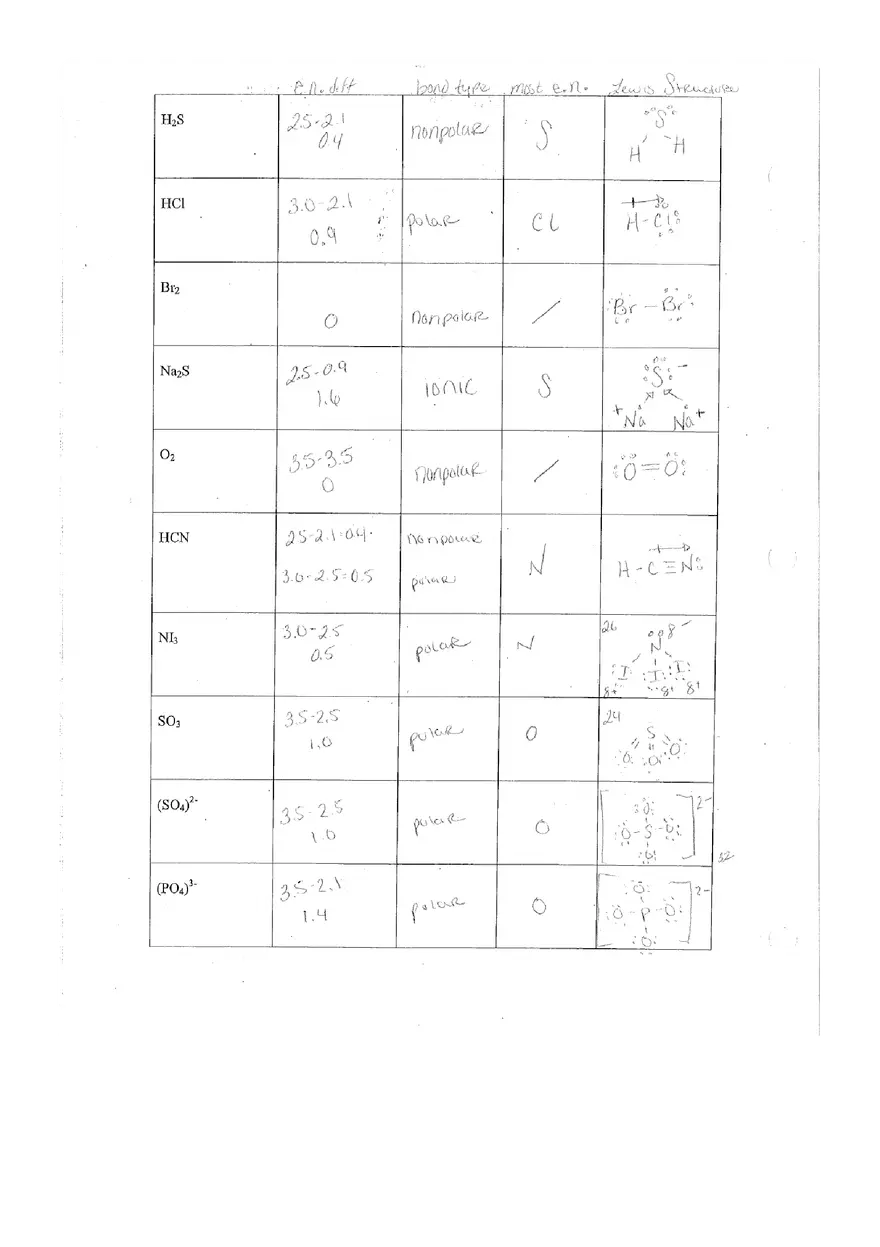 e.n. diff bond type most e.n. Lewis Structure
H₂S
2.5-2.1
0.4
nonpolar
S
S
H H
HCl
3.0-2.1
0.9
polar
Cl
H-Cl
Br₂
0
nonpolar
/
Br-Br
Na₂S
2.5-0.9
1.6
ionic
S
S -
+Na Na+
O₂
3.5-3.5
0
nonpolar
/
O=O
HCN
2.5-2.1=0.4
3.0-2.5=0.5
nonpolar
polar
N
H-C≡N
NI₃
3.0-2.5
0.5
polar
N
26
8-
N
I I I
8+ 8+ 8+
SO₃
3.5-2.5
1.0
polar
O
24
S
O O O
(SO₄)²⁻
3.5-2.5
1.0
polar
O
O 2-
O-S-O
O
32
(PO₄)³⁻
3.5-2.1
1.4
polar
O
O 2-
O-P-O
O